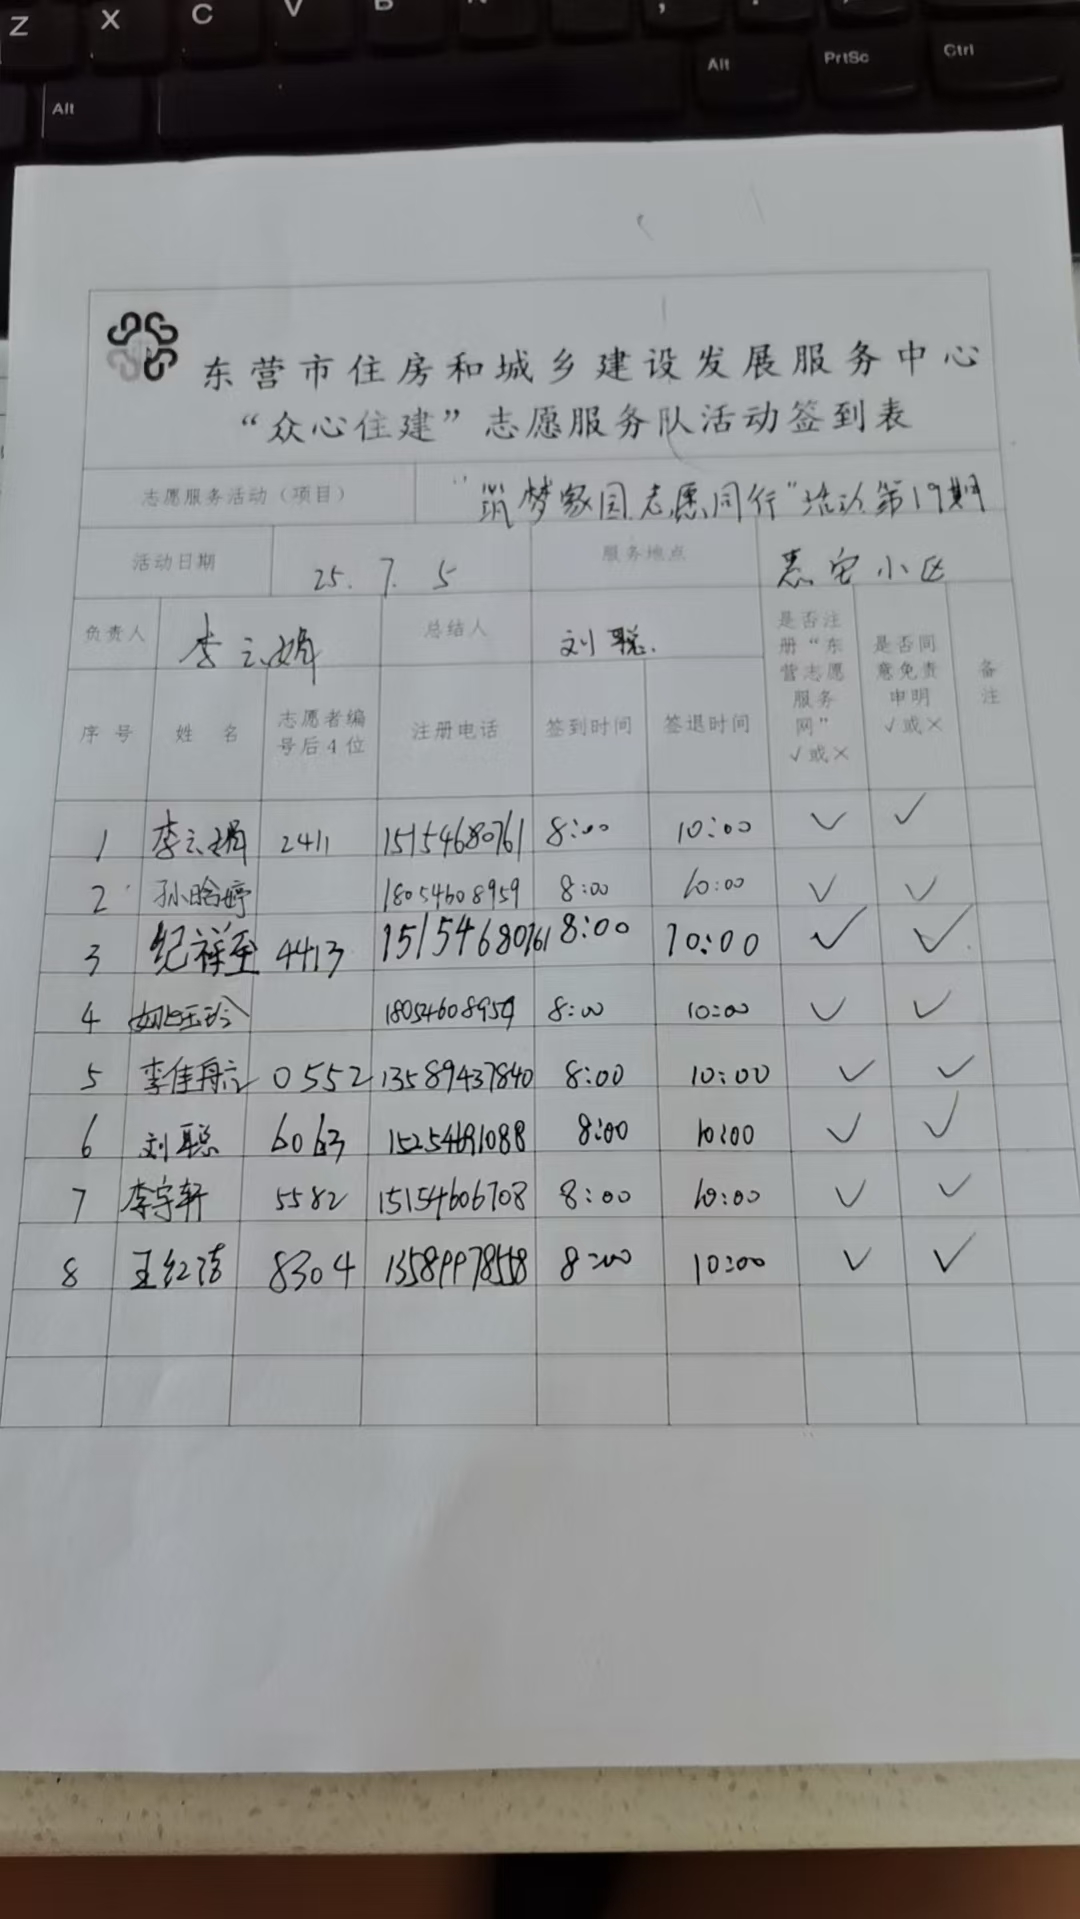 Z X C V B
Alt Alt PrtSc Ctrl
东营市住房和城乡建设发展服务中心
“众心住建”志愿服务队活动签到表
志愿服务活动（项目） “筑梦家园志愿同行”活动第19期
活动日期 25.7.5 服务地点 惠宅小区
负责人 李云娟 总结人 刘聪 是否注册“东营志愿服务网”√或× 是否同意免责申明√或× 备注
序号 姓名 志愿者编号后4位 注册电话 签到时间 签退时间
1 李云娟 2411 15154680761 8:00 10:00 √ √
2 孙晗婷 18054608959 8:00 10:00 √ √
3 纪祥至 4413 15154680761 8:00 10:00 √ √
4 18054608959 8:00 10:00 √ √
5 李佳 0552 13589437840 8:00 10:00 √ √
6 刘聪 6063 15254691088 8:00 10:00 √ √
7 李宇轩 5582 15154606708 8:00 10:00 √ √
8 王红洁 8304 8:00 10:00 √ √